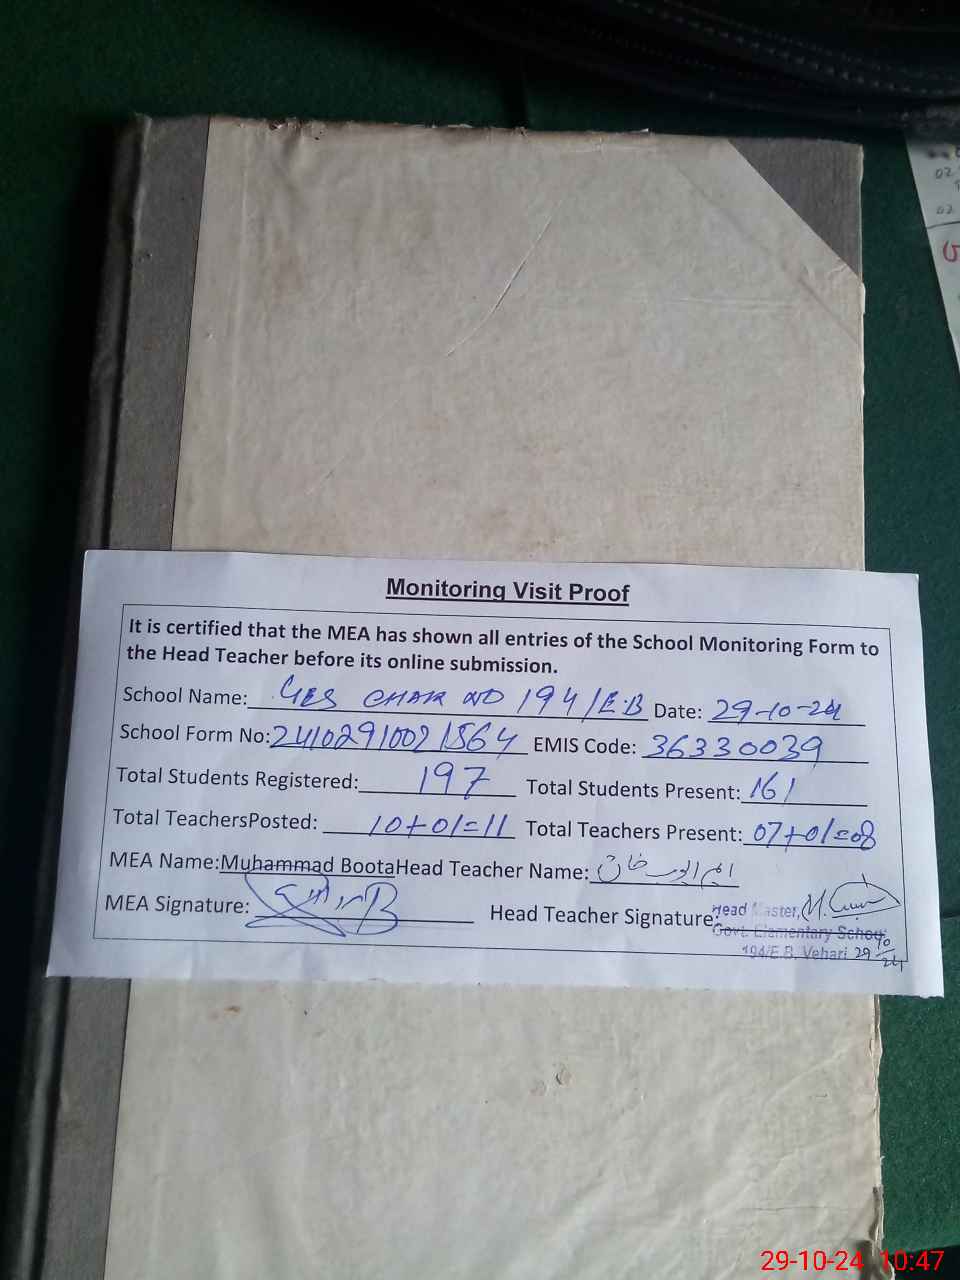 Monitoring Visit Proof
It is certified that the MEA has shown all entries of the School Monitoring Form to
the Head Teacher before its online submission.
School Name: GES CHAK NO 194/E.B Date: 29-10-24
School Form No: 24102910021564 EMIS Code: 36330039
Total Students Registered: 197 Total Students Present: 161
Total TeachersPosted: 10+01=11 Total Teachers Present: 07+01=08
MEA Name: Muhammad Boota Head Teacher Name:
MEA Signature: Head Teacher Signature:
Head Master,
Govt. Elementary School
194/E.B. Vehari 29/10/24
02
02
29-10-24 10:47